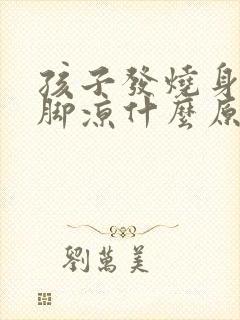 孩子發燒身
腳涼什麼原
劉萬美